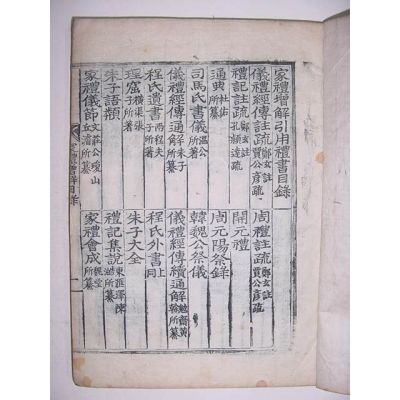 家禮增解引用禮書目錄
儀禮經傳註疏 鄭玄註賈公彥疏 周禮註疏 鄭玄註賈公彥疏
禮記註疏 鄭玄註孔穎達疏 開元禮
通典 杜佑所著 周元陽祭錄
司馬氏書儀 溫公所著 韓魏公祭儀
儀禮經傳通解 朱子所纂 儀禮經傳續通解 勉齋黃榦所纂
程氏遺書 兩程夫子所著 程氏外書 上同
理窟 橫渠張子所著 朱子大全
朱子語類 禮記集說 東匯澤陳澔所纂
家禮儀節 文莊公瓊山丘濬所纂 家禮會成 魏堂所纂
家禮增解目錄 一